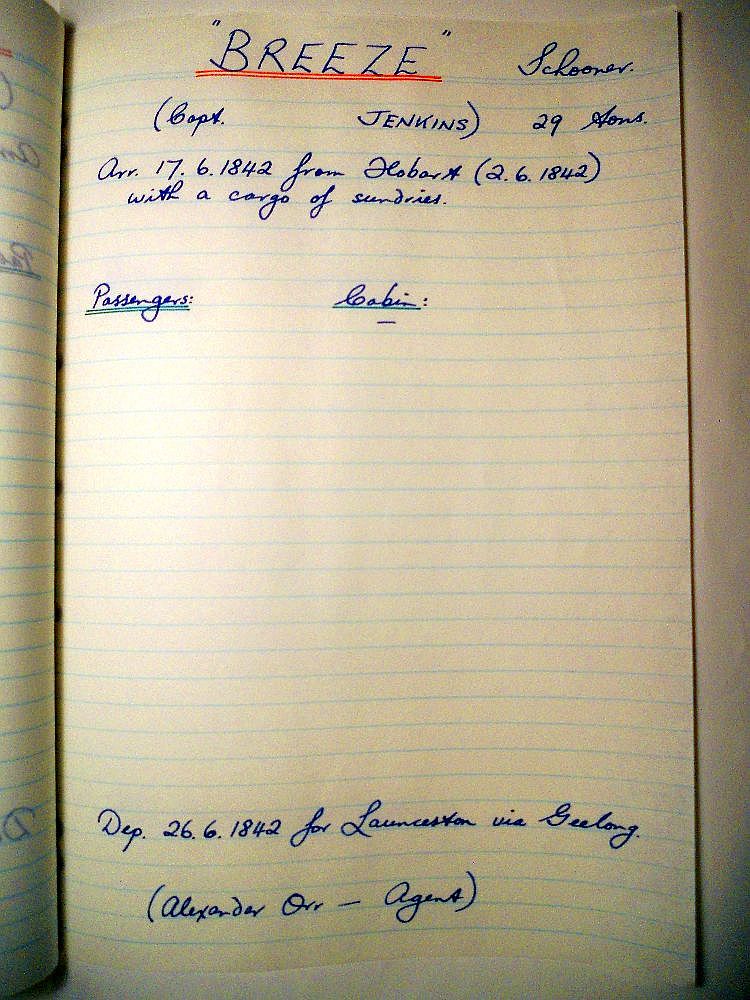 "BREEZE" Schooner.
(Capt. JENKINS) 29 tons.
Arr. 17.6.1842 from Hobart (2.6.1842)
with a cargo of sundries.
Passengers: Cabin:
—
Dep. 26.6.1842 for Launceston via Geelong.
(Alexander Orr — Agent)